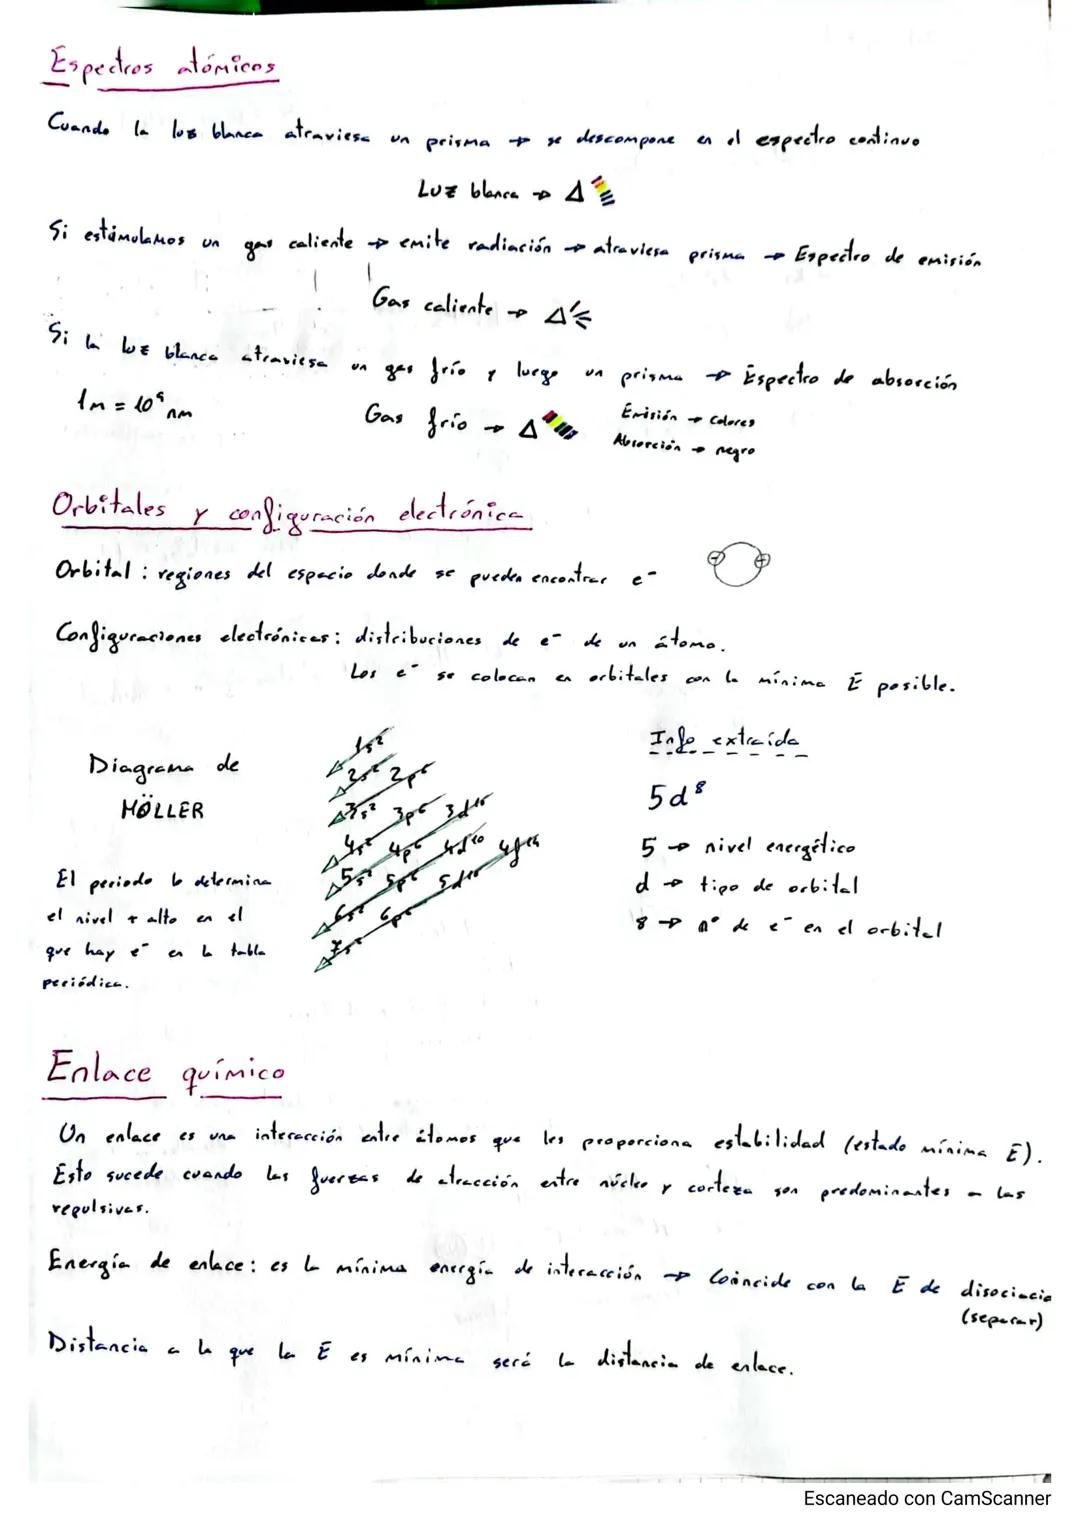 Espectros atómicos
Cuando la luz blanca atraviesa un prisma → se descompone en el espectro continuo
Luz blanca → Δ
Si estimulamos un gas caliente → emite radiación → atraviesa prisma → Espectro de emisión
Gas caliente → Δ
Si la luz blanca atraviesa un gas frío y luego un prisma → Espectro de absorción
1m = 10⁹ nm
Gas frío → Δ
Emisión → Colores
Absorción → negro
Orbitales y configuración electrónica
Orbital : regiones del espacio donde se pueden encontrar e⁻
Configuraciones electrónicas: distribuciones de e⁻ de un átomo.
Los e⁻ se colocan en orbitales con la mínima E posible.
Diagrama de
MÖLLER
1s²
2s² 2p⁶
3s² 3p⁶ 3d¹⁰
4s² 4p⁶ 4d¹⁰ 4f¹⁴
5s² 5p⁶ 5d¹⁰
6s² 6p⁶
7s²
El periodo lo determina
el nivel + alto en el
que hay e⁻ en la tabla
periódica.
Info extraída
5d⁸
5 → nivel energético
d → tipo de orbital
8 → nº de e⁻ en el orbital
Enlace químico
Un enlace es una interacción entre átomos que les proporciona estabilidad (estado mínima E).
Esto sucede cuando las fuerzas de atracción entre núcleo y corteza son predominantes a las
repulsivas.
Energía de enlace: es la mínima energía de interacción → Coincide con la E de disociacio
(separar)
Distancia a la que la E es mínima será la distancia de enlace.
Escaneado con CamScanner